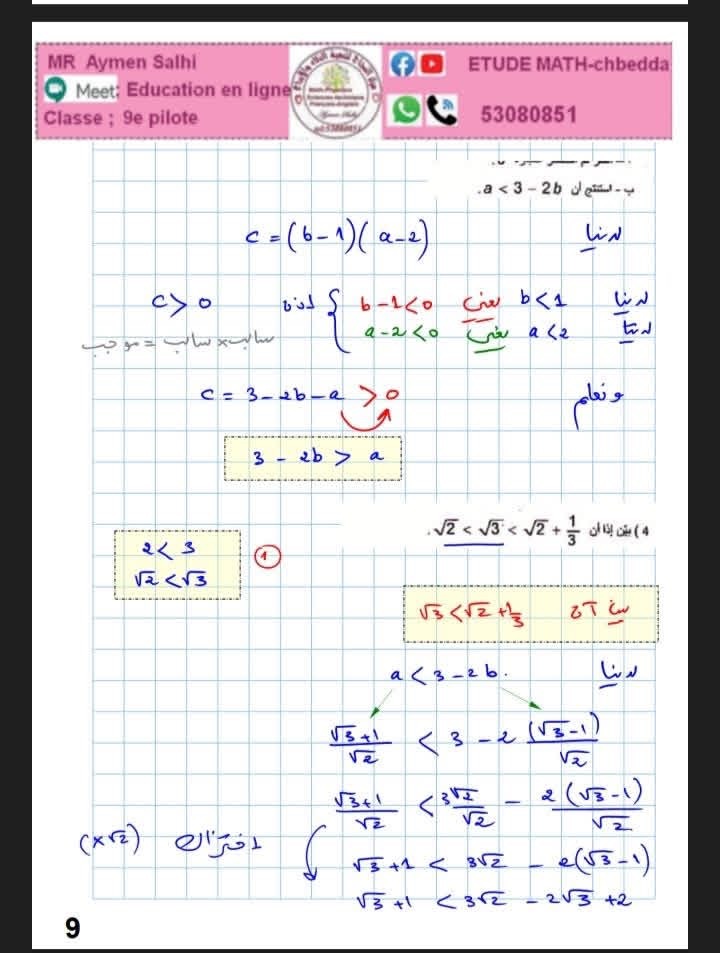 MR Aymen Salhi
Meet: Education en ligne
Classe ; 9e pilote
ETUDE MATH-chbedda
53080851
ب - استنتج أن a < 3 − 2b.
لدينا c = (b-1)(a-2)
لدينا b<1 يعني b-1<0
لدينا a<2 يعني a-2<0
إذن c > 0
سالب × سالب = موجب
و نعلم c = 3-2b-a > 0
3 - 2b > a
4 ) بيّن إذا أن √2 < √3 < √2 + 1/3.
① 2 < 3
√2 < √3
√3 < √2 + 1/3
لدينا a < 3-2b.
(√3+1)/√2 < 3 - 2 (√3-1)/√2
(√3+1)/√2 < 3√2/√2 - 2(√3-1)/√2
(×√2)
√3+1 < 3√2 - 2(√3-1)
√3+1 < 3√2 - 2√3 + 2
9